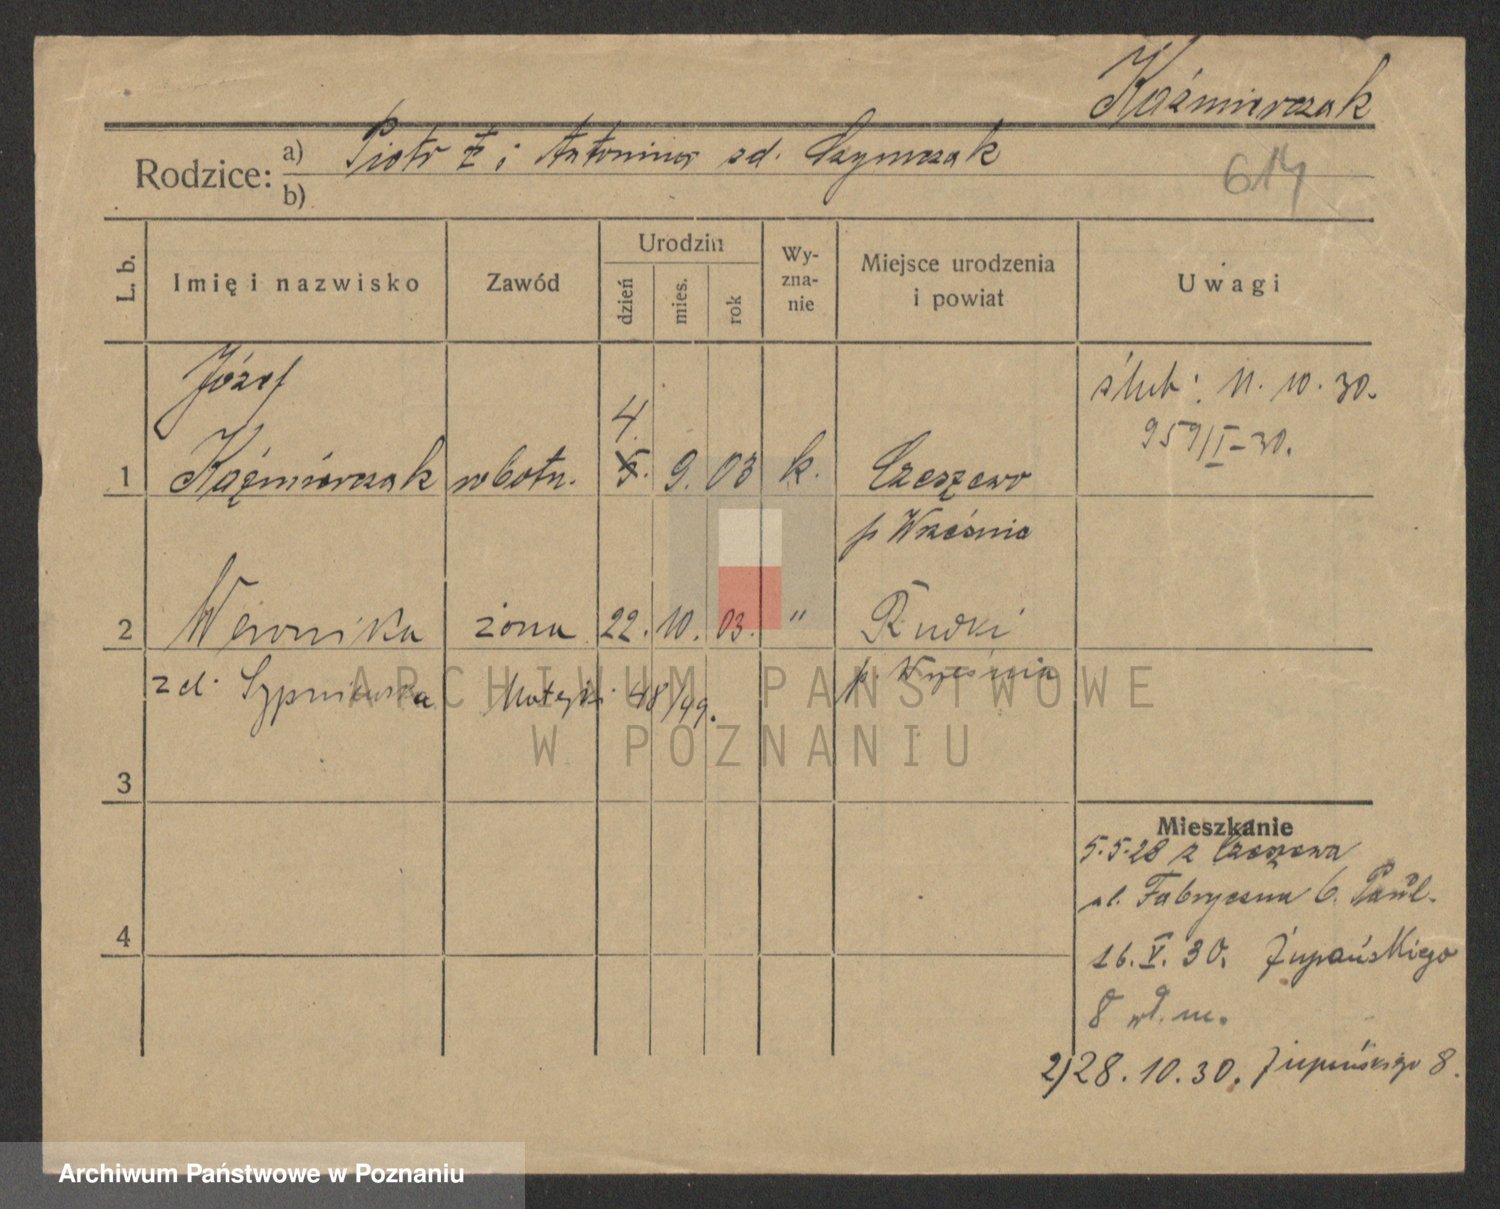 Kaźmierczak
Rodzice: a) Piotr ż i Antonina zd. Szymczak
b)
614
L. b.
Imię i nazwisko
Zawód
Urodzin
dzień
mies.
rok
Wy-
zna-
nie
Miejsce urodzenia
i powiat
Uwagi
Józef
4.
ślub: 11. 10. 30.
959/I-30.
1 Kaźmierczak robotn. 5. 9. 03 k. Czeszewo
p Września
2 Weronika żona 22. 10. 03. " Rudki
zd. Sypniewska 48/49. p. Września
3
Mieszkanie
5.5.28 z Czeszewa
ul. Fabryczna 6. Pawl.
4
16. V. 30. Żupańskiego
8 wł. m.
2) 28. 10. 30. Żupańskiego 8.
ARCHIWUM PAŃSTWOWE
W POZNANIU
Archiwum Państwowe w Poznaniu